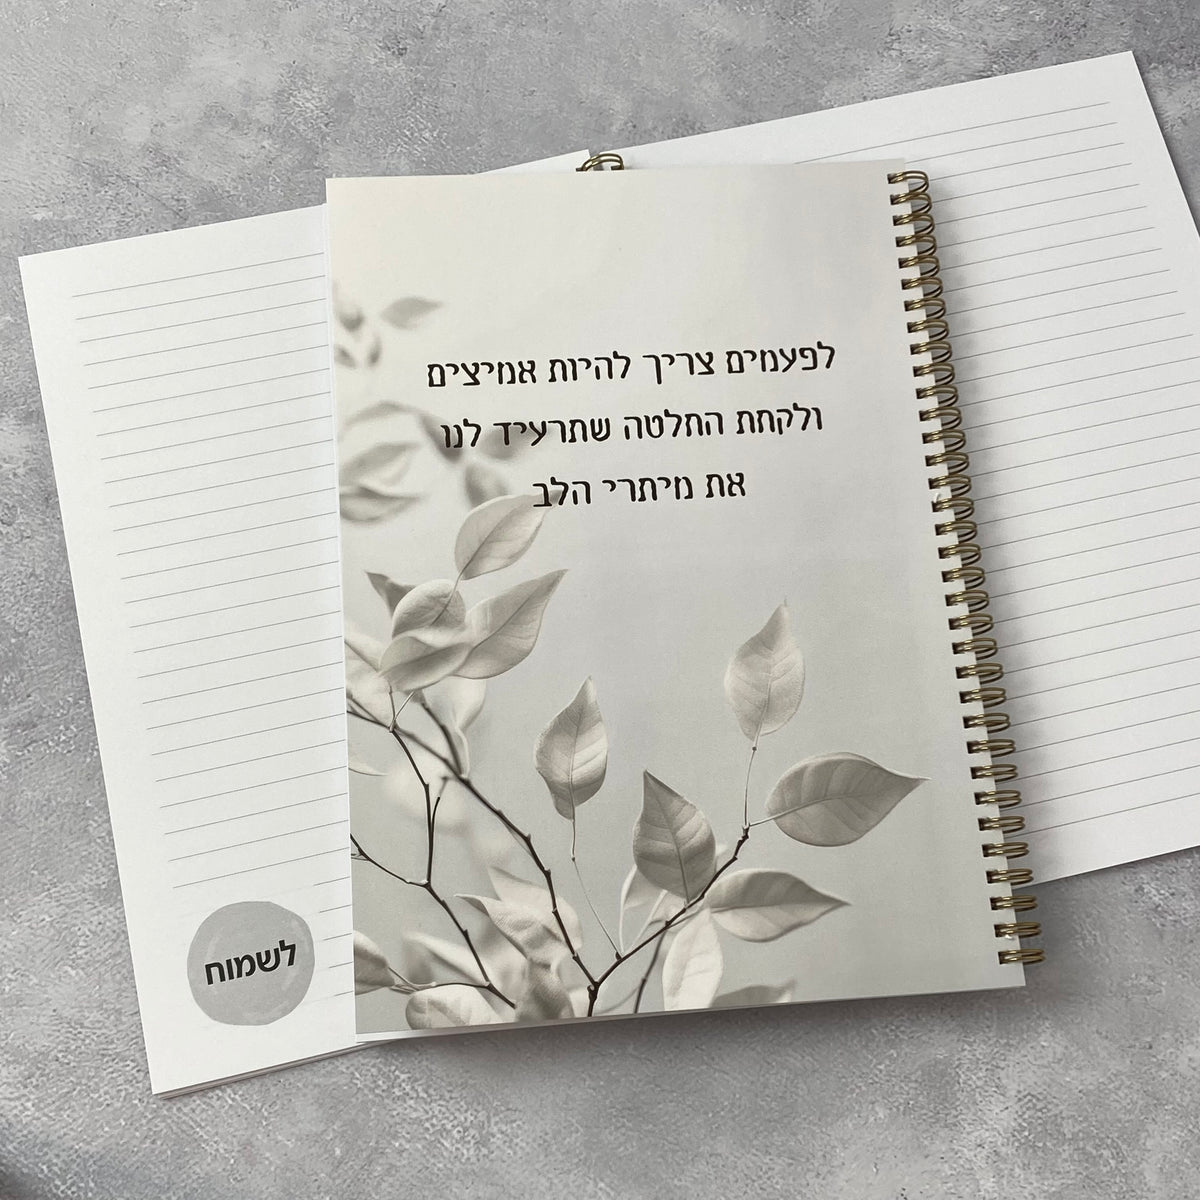 לפעמים צריך להיות אמיצים
ולקחת החלטה שתרעיד לנו
את מיתרי הלב
לשמוח